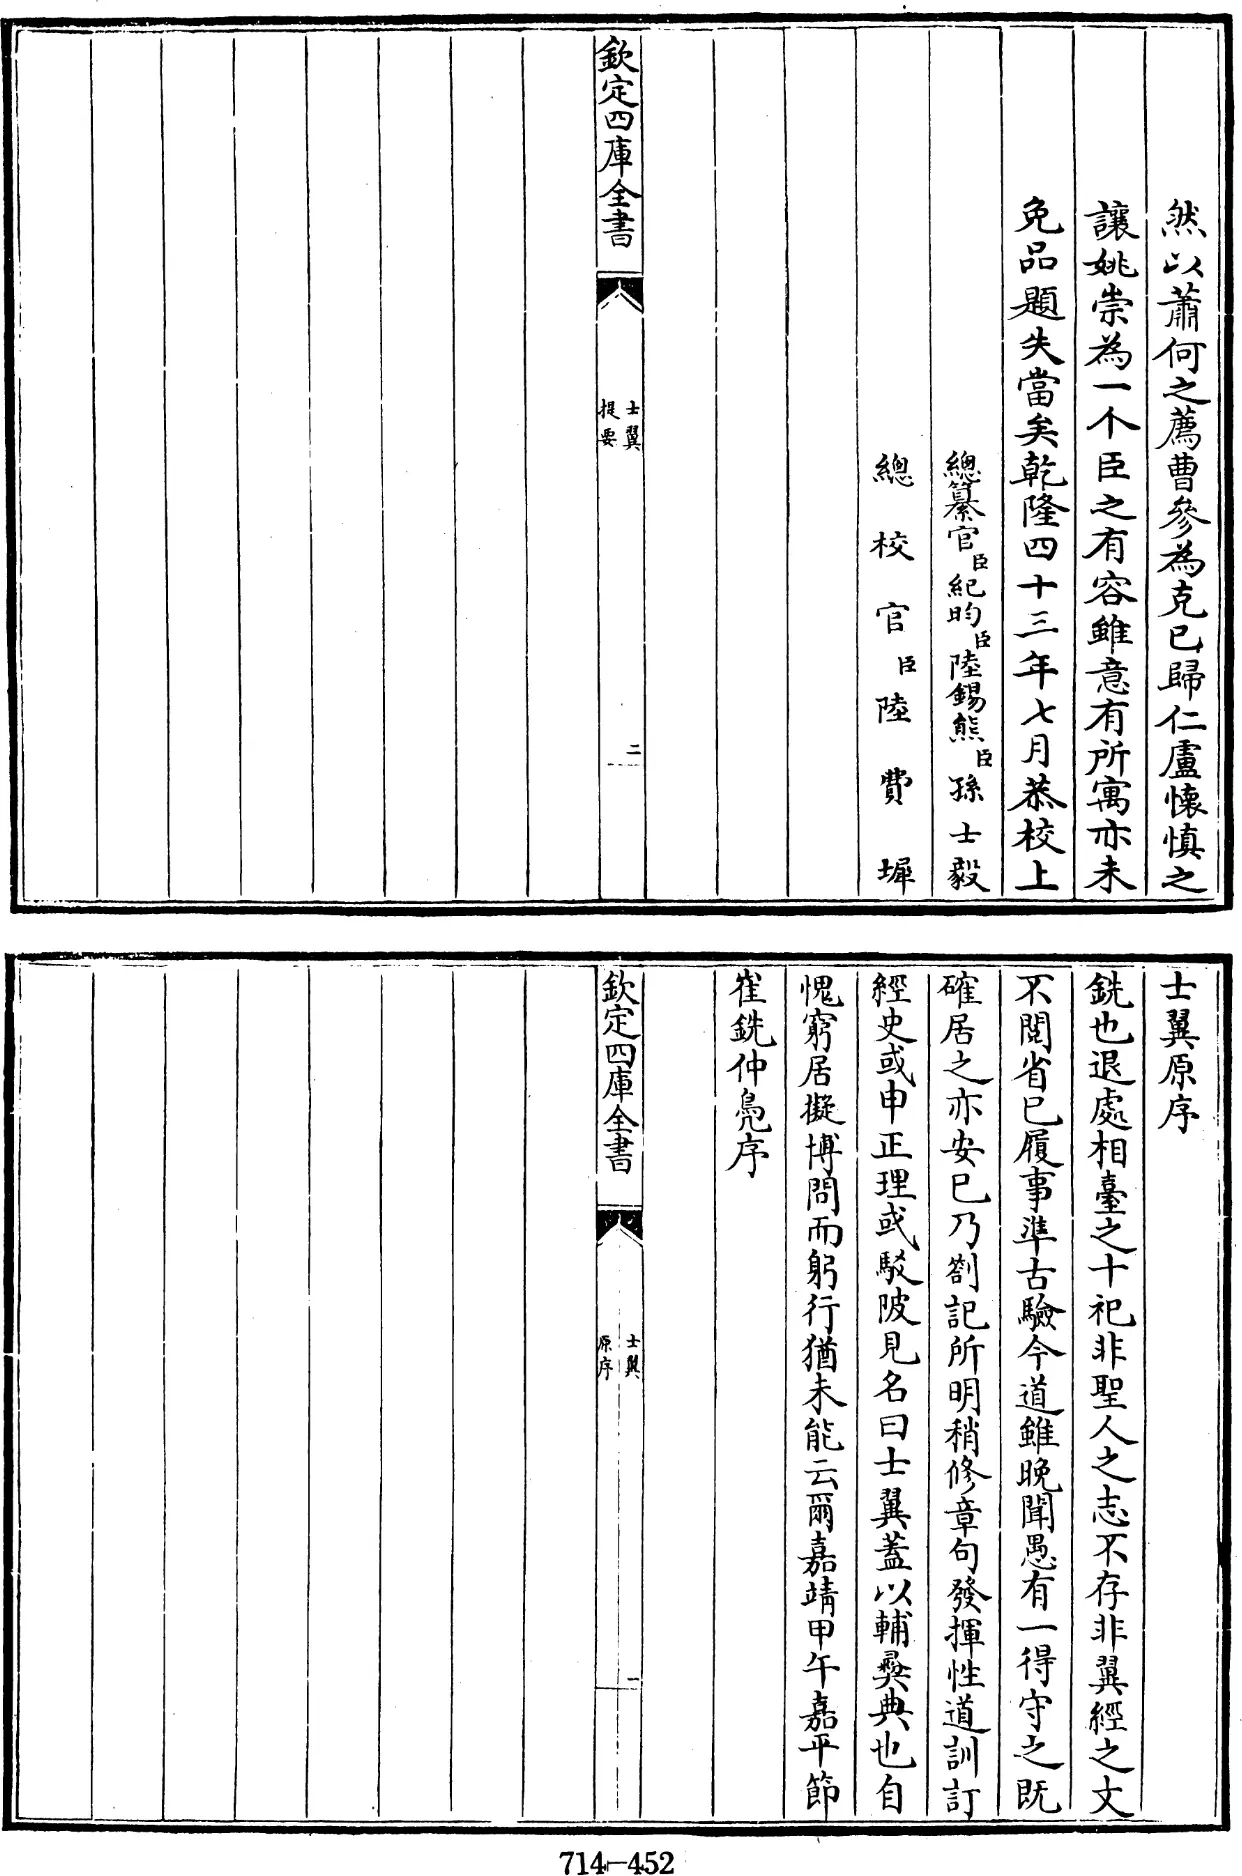 然以蕭何之薦曹參為克己歸仁盧懷慎之
讓姚崇為一个臣之有容雖意有所寓亦未
免品題失當矣乾隆四十三年七月恭校上
總纂官臣紀昀臣陸錫熊臣孫士毅
總校官臣陸費墀
欽定四庫全書
士翼
提要
二
士翼原序
銑也退處相臺之十祀非聖人之志不存非翼經之文
不閲省已履事準古驗今道雖晚聞愚有一得守之既
確居之亦安已乃劄記所明稍修章句發揮性道訓訂
經史或申正理或駁陂見名曰士翼蓋以輔彛典也自
愧窮居擬博問而躬行猶未能云爾嘉靖甲午嘉平節
崔銑仲鳧序
欽定四庫全書
士翼
原序
一
714-452